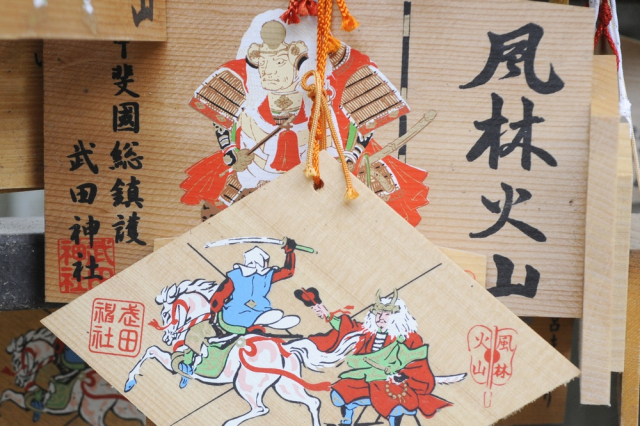 風林火山
甲斐国総鎮護
武田神社
武田
神社
武田
神社
風林
火山
山